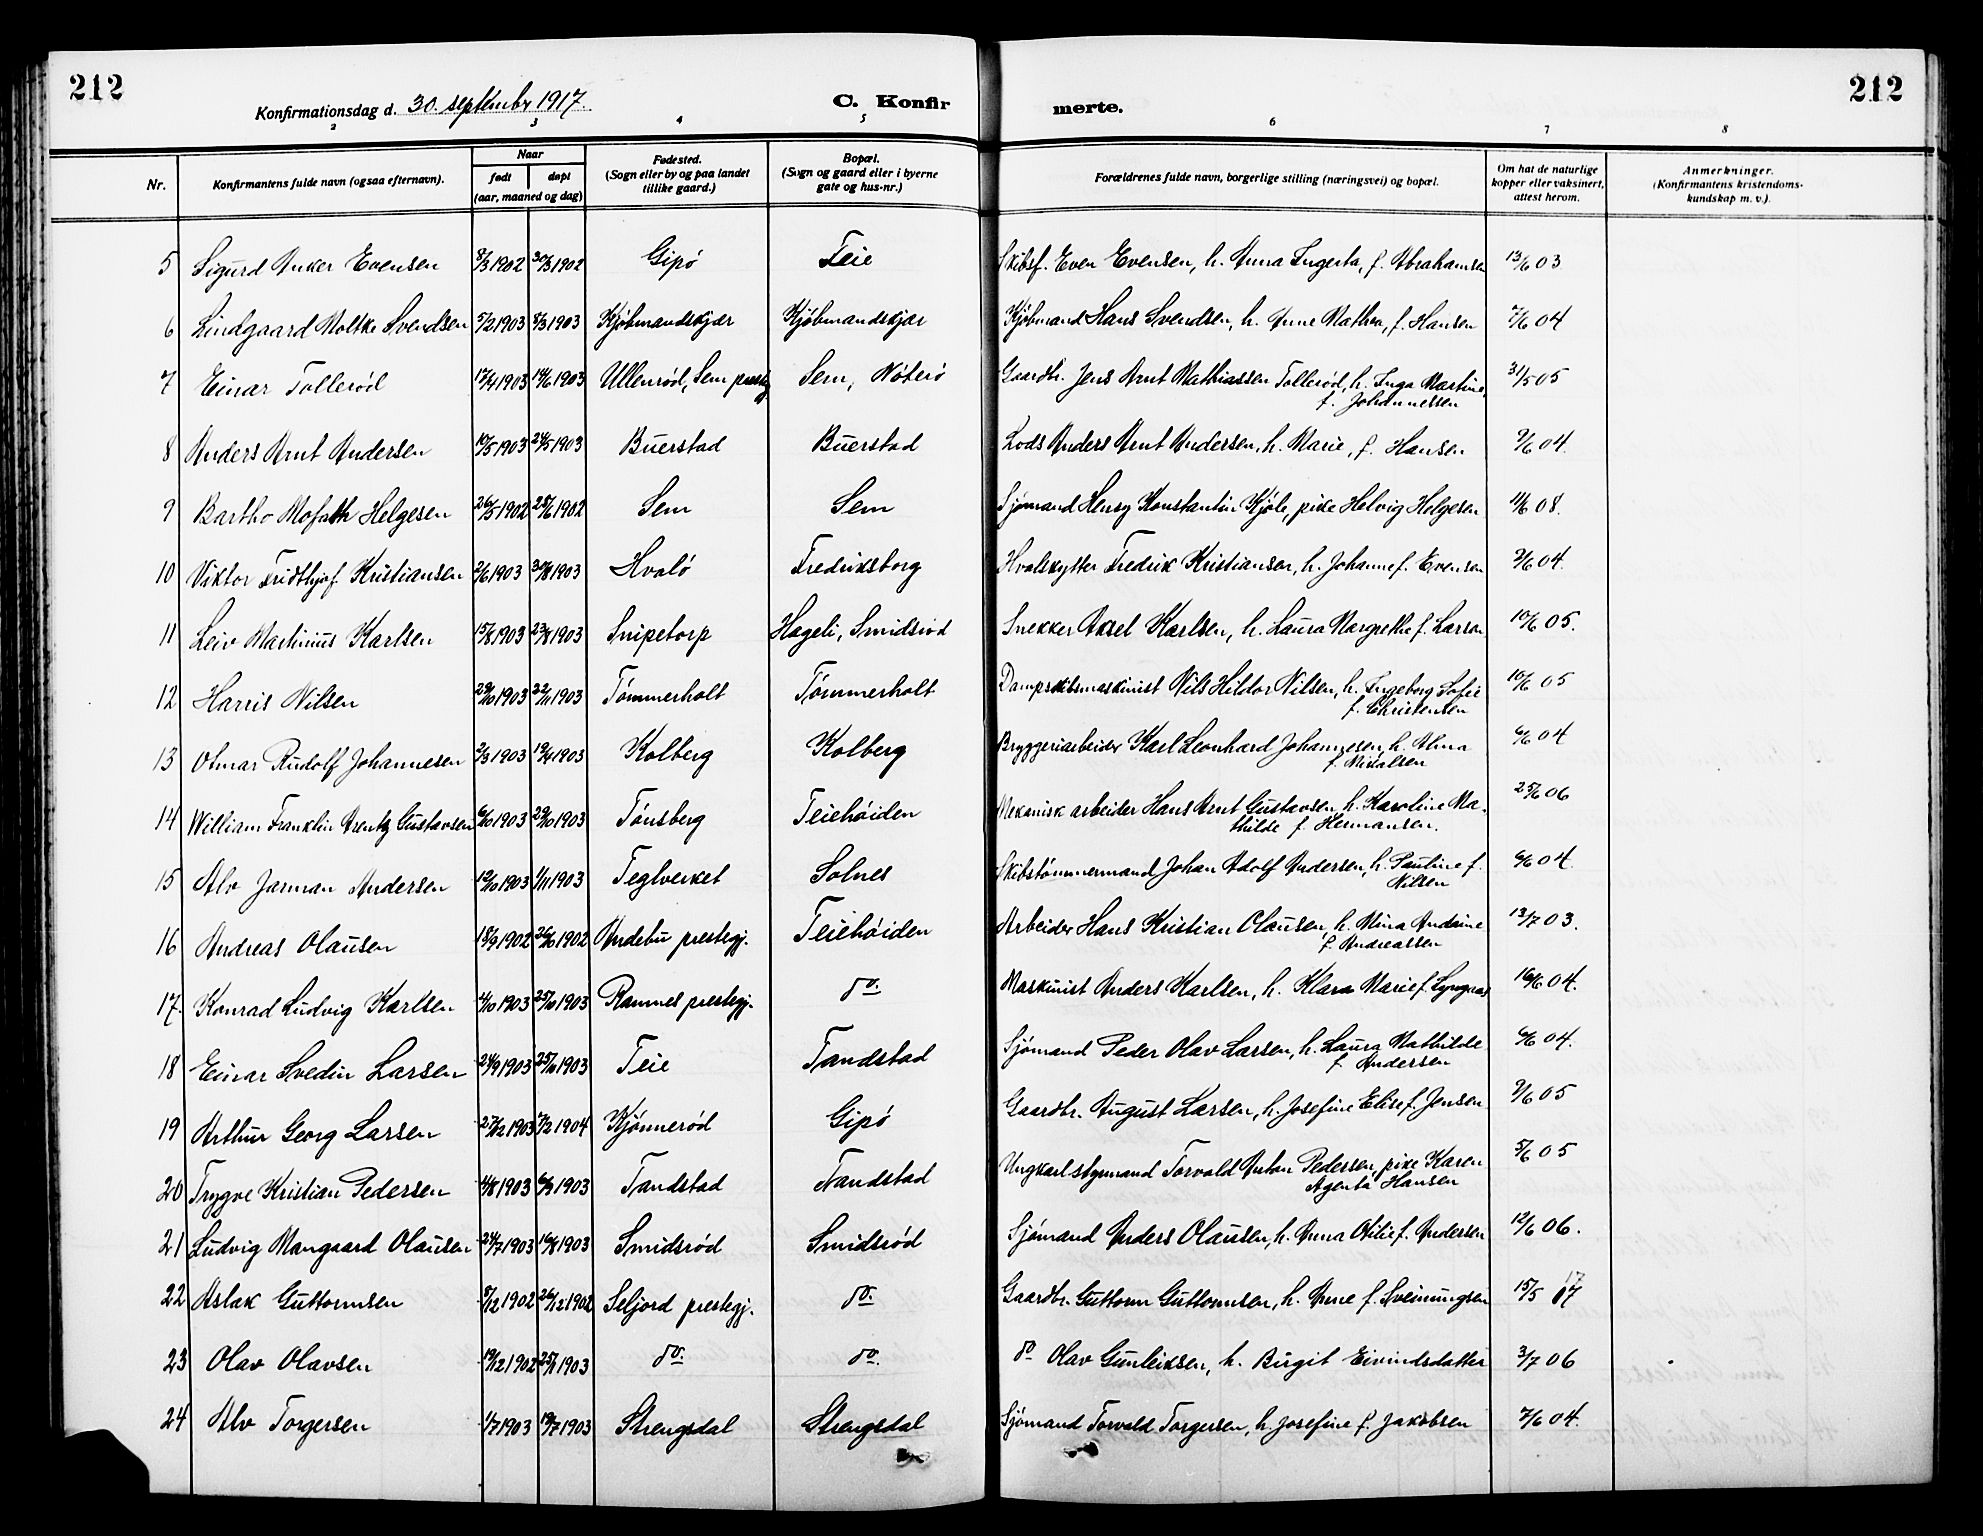 212
Konfirmationsdag d. 30. september 1917.
C. Konfir
merte.
212
2 3 4 5 6 7 8
Nr.
Konfirmantens fulde navn (ogsaa efternavn).
Naar
født
døpt
(aar, maaned og dag)
Fødested.
(Sogn eller by og paa landet
tillike gaard.)
Bopæl.
(Sogn og gaard eller i byerne
gate og hus-nr.)
Forældrenes fulde navn, borgerlige stilling (næringsvei) og bopæl.
Om hat de naturlige
kopper eller vaksinert,
attest herom.
Anmerkninger.
(Konfirmantens kristendoms-
kundskap m. v.).
5 Sigurd Anker Evensen 8/3 1902 30/3 1902 Gipø Teie Skibsf. Even Evensen, h. Anna Ingerta, f. Abrahamsen 13/6 03
6 Lindgaard Moltke Svendsen 5/2 1903 8/3 1903 Kjøbmandskjær Kjøbmandskjær Kjøbmand Hans Svendsen, h. Anne Mathea, f. Hansen 7/6 04
7 Einar Tollerød 17/4 1903 14/6 1903 Ullenrød, Sem prestg Sem, Nøterø Gaardbr. Jens Arnt Mathiassen Tollerød, h. Inga Martine, 31/5 05
f. Johannessen
8 Anders Arnt Andersen 10/5 1903 24/5 1903 Buerstad Buerstad Lods Anders Arnt Andersen, h. Marie, f. Hansen 9/6 04.
9 Bartho Helgesen 26/5 1902 25/6 1902 Sem Sem Sjømand Henry Konstantin Kjøle, pike Helvig Helgesen 11/6 08.
10 Viktor Fridthjof Kristiansen 2/6 1903 30/8 1903 Hvalø Fredriksborg Hvalskytter Fredrik Kristiansen, h. Johanne f. Evensen 9/6 04.
11 Leiv Martinius Karlsen 15/8 1903 23/8 1903 Snipetorp Hageli, Smidsrød Snekker Aksel Karlsen, h. Laura Margrethe f. Larsen 10/6 05.
12 Harris Nilsen 29/10 1903 22/11 1903 Tømmerholt Tømmerholt Dampskibsmaskinist Nils Hildor Nilsen, h. Ingeborg Sofie 10/6 05
f. Christensen
13 Olmar Rudolf Johannesen 2/3 1903 19/4 1903 Kolberg Kolberg Bryggeriarbeider Karl Leonhard Johannesen, h. Alma 6/6 04
f. Mikalsen
14 William Franklin Arentz Gustavsen 6/10 1903 29/10 1903 Tønsberg Teiehøiden Mekanisk arbeider Hans Arnt Gustavsen, h. Karoline Ma- 25/6 06
thilde f. Hermansen.
15 Alv Jarman Andersen 12/10 1903 1/11 1903 Teglverket Solnes Skibstømmermand Johan Adolf Andersen, h. Pauline f. 6/6 04.
Nilsen
16 Andreas Olausen 18/9 1902 26/10 1902 Andebu prestegj. Teiehøiden Arbeider Hans Kristian Olausen, h. Mina Andrine 13/7 03.
f. Andreassen
17. Konrad Ludvig Karlsen 4/10 1903 25/10 1903 Ramnes prestegj. do. Maskinist Anders Karlsen, h. Klara Marie f. Lyngaas 16/6 04.
18 Einar Svedin Larsen 24/9 1903 25/10 1903 Teie Tandstad Sjømand Peder Olav Larsen, h. Laura Mathilde 6/6 04.
f. Andersen
19 Arthur Georg Larsen 27/12 1903 7/2 1904 Kjønnerød Gipø Gaardbr. August Larsen, h. Josefine Elise f. Jensen 9/6 05
20 Trygve Kristian Pedersen 4/8 1903 6/9 1903 Tandstad Tandstad Ungkarl styrmand Torvald Anton Pedersen, pike Karen 5/6 05
Agenta Hansen
21 Ludvig Mangaard Olausen 24/7 1903 16/8 1903 Smidsrød Smidsrød Sjømand Anders Olausen, h. Anna Otilie f. Andersen 12/6 06.
22 Aslak Guttormsen 5/12 1902 26/12 1902 Seljord prestegj. do. Gaardbr. Guttorm Guttormsen, h. Anne f. Sveinungsen 15/5 17
23 Olav Olavsen 19/12 1902 25/1 1903 do. do. do Olav Gunleiksen, h. Birgit Eivindsdatter 3/7 06
24 Alv Torgersen 1/7 1903 19/7 1903 Strengsdal Strengsdal Sjømand Torvald Torgersen, h. Josefine f. Jakobsen 7/6 04.